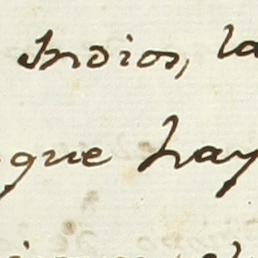 Indios, la
que hay